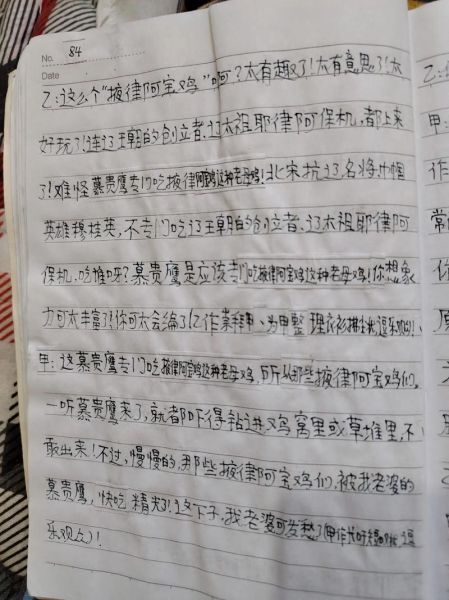 No. 84
Date
乙:这么个“掖律阿宝鸡”啊?太有趣了!太有意思了!太
好玩了!连辽王朝的创立者、辽太祖耶律阿保机,都上来
了!难怪慕贵鹰专门吃掖律阿宝鸡这种老母鸡!北宋抗辽名将、巾帼
英雄穆桂英,不专门吃辽王朝的创立者、辽太祖耶律阿
保机,吃谁呀?慕贵鹰是应该专门吃掖律阿宝鸡这种老母鸡!你想象
力可太丰富了!你可太会编了!(乙作素拜甲、为甲整理衣衫
甲:这慕贵鹰专门吃掖律阿宝鸡这种老母鸡,所以那些掖律阿宝鸡们,
一听慕贵鹰来了,就都吓得钻进鸡窝里或草堆里,不
敢出来!不过,慢慢的,那些掖律阿宝鸡们,被我老婆的
慕贵鹰,快吃精光了!这下子,我老婆可发愁了(甲作长吁短叹状,逗
乐观众)!
乙:
甲:
作
常
你